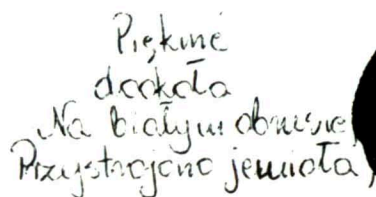 Pięknie
dookoła
Na białym obrusie
Przystrojono jemioła,